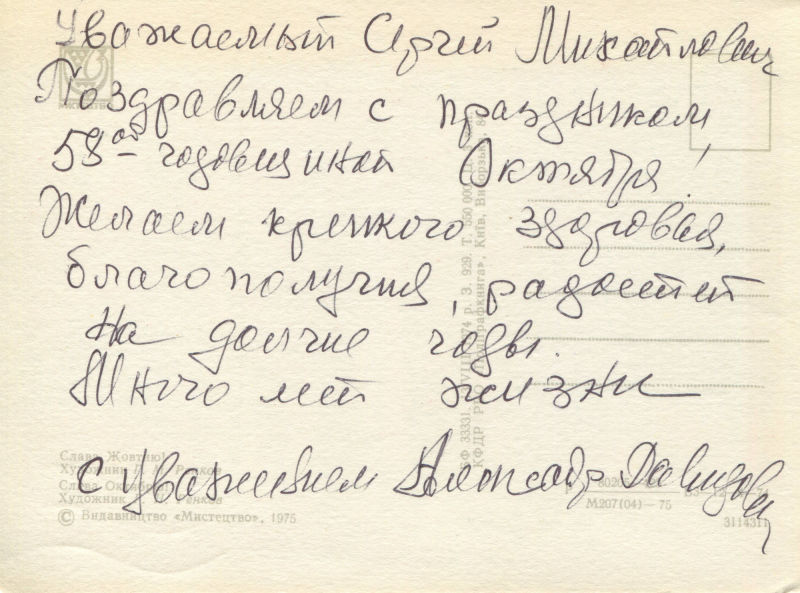 Уважаемый Сергей Михайлович
Поздравляем с праздником,
58ой годовщиной Октября!
Желаем крепкого здоровья,
благополучия, радостей
на долгие годы.
Много лет жизни
С уважением Александр Давидович
Слава Жовтню!
Художник
Слава Октябрю
Художник
© Видавництво «Мистецтво», 1975
М207(04)—75
3114311